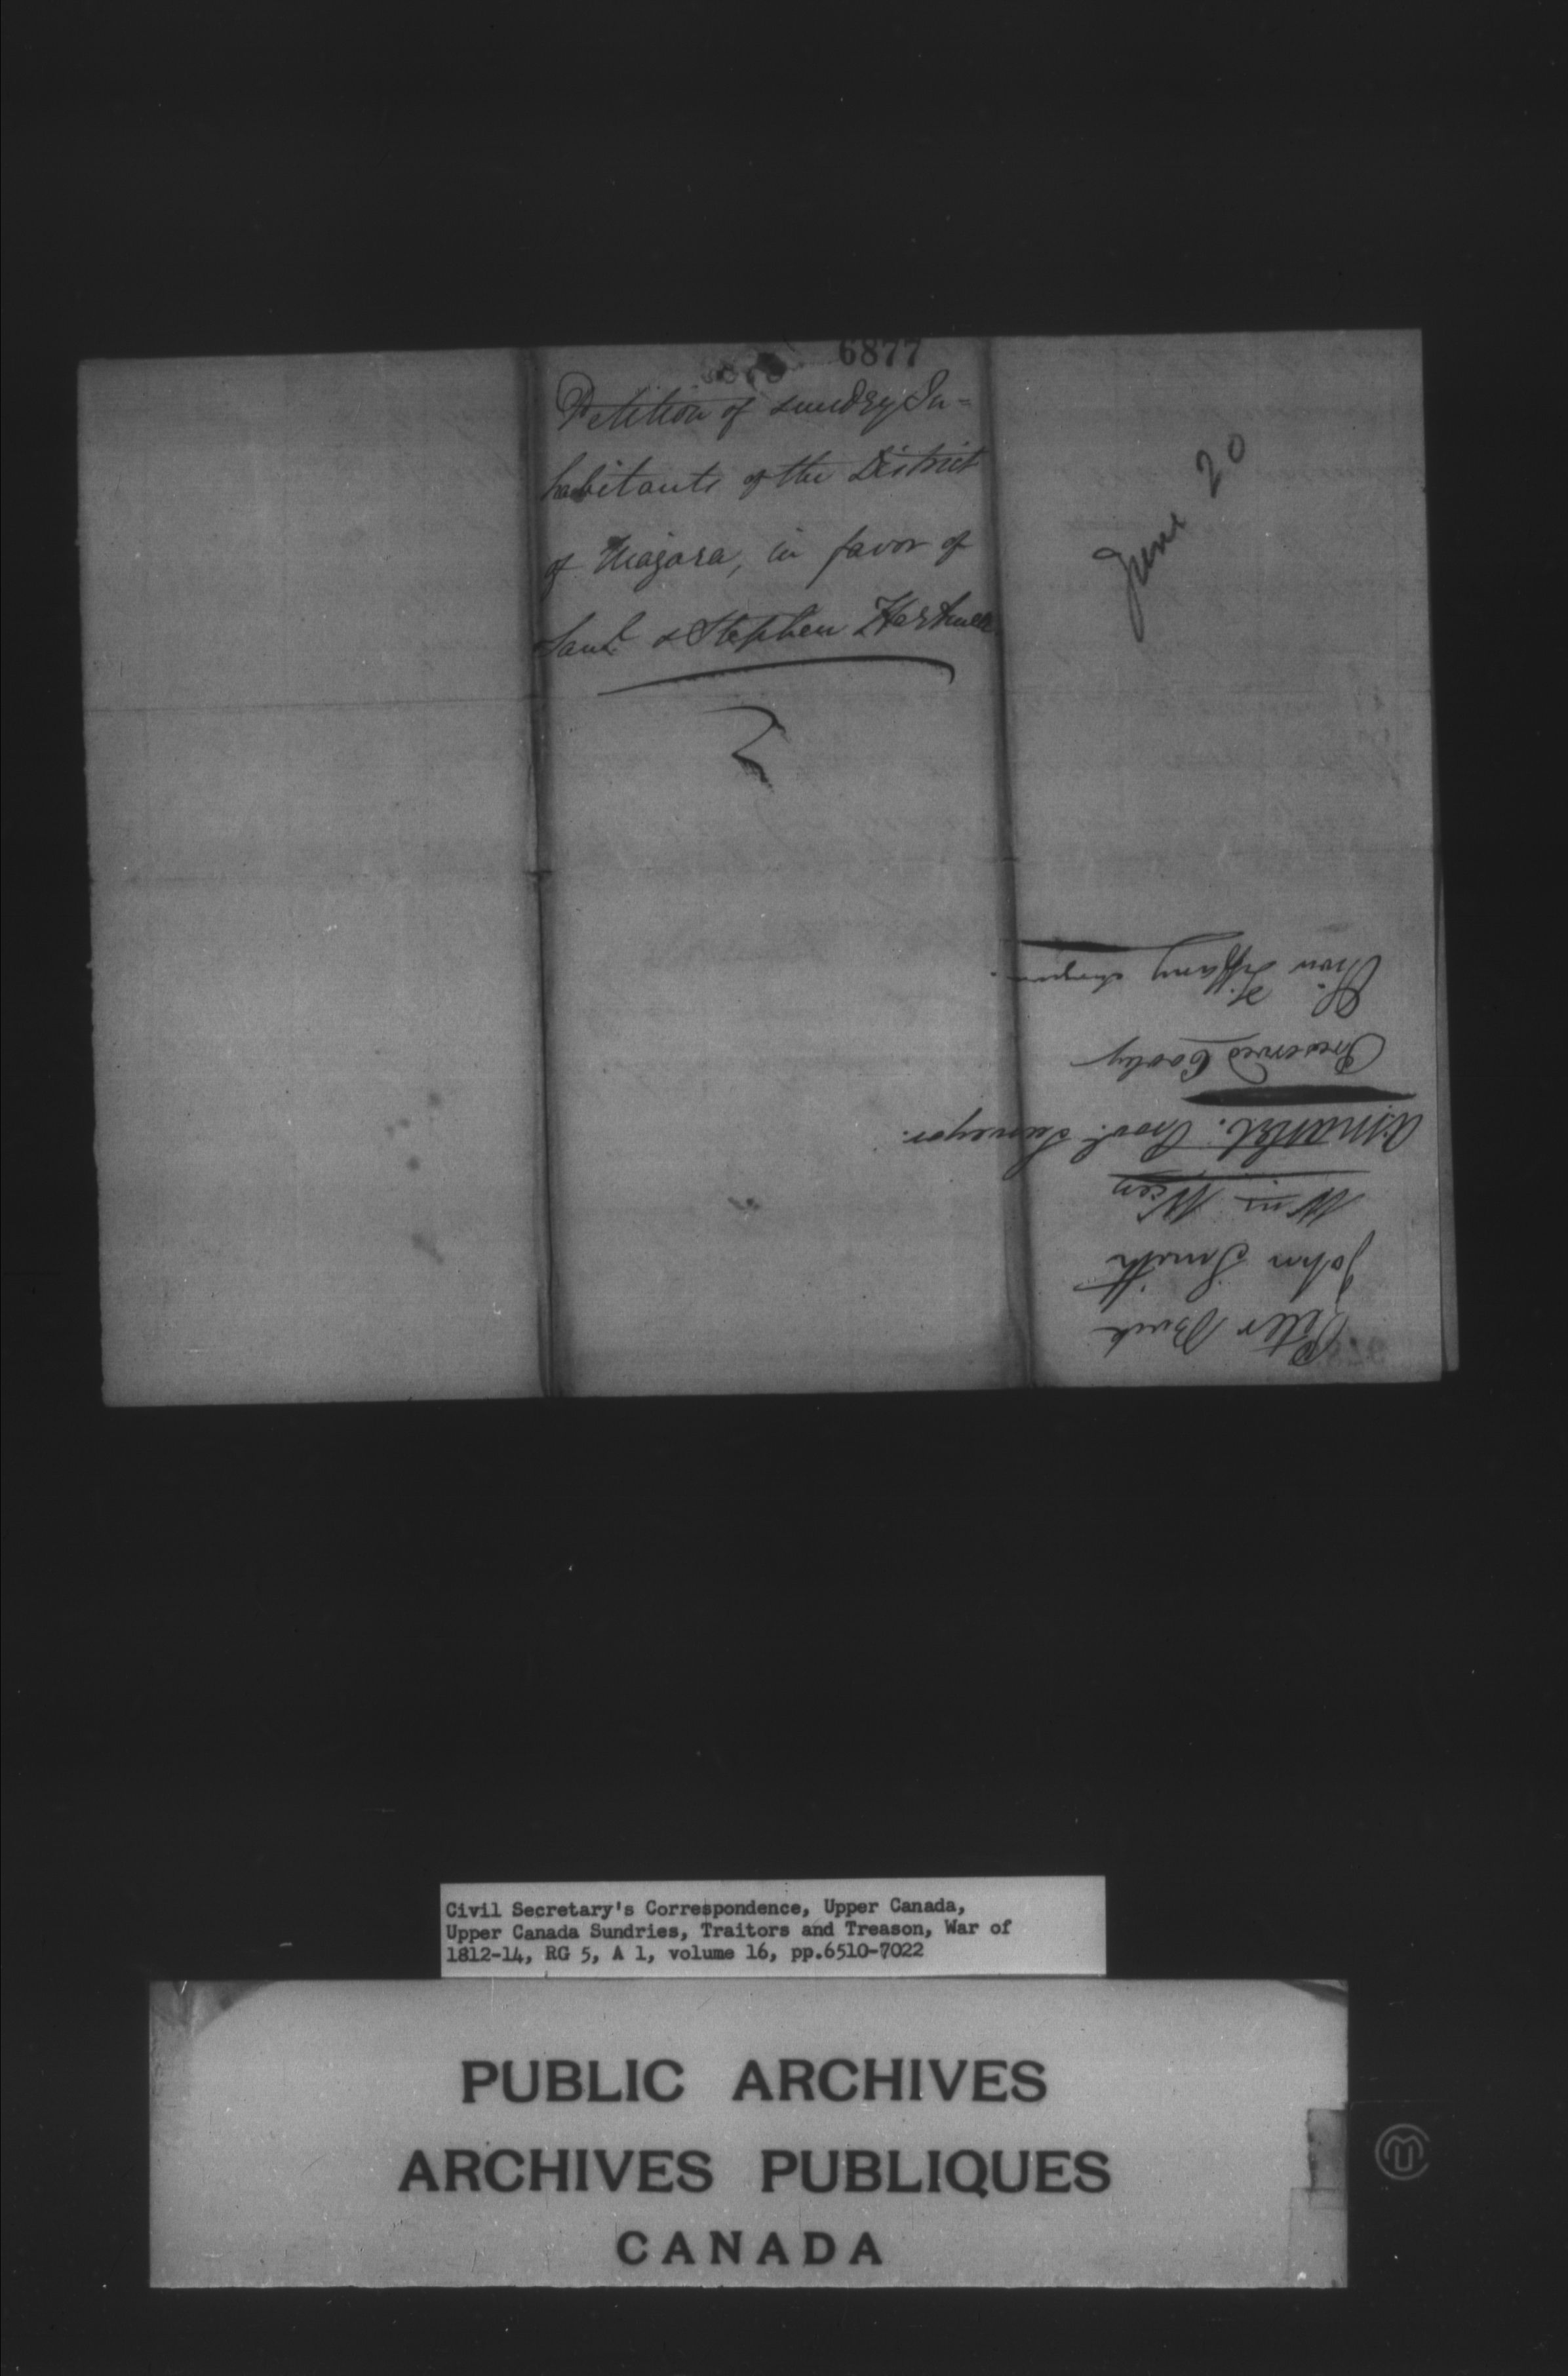 6877
Petition of sundry In=
habitants of the District
of Niagara, in favor of
Saml. & Stephen Hartwell.
June 20
Peter Buck
John Smith
Wm
Provl. Surveyor.
Preserved Cooley
Oliver Tiffany
Civil Secretary's Correspondence, Upper Canada,
Upper Canada Sundries, Traitors and Treason, War of
1812-14, RG 5, A 1, volume 16, pp.6510-7022
PUBLIC ARCHIVES
ARCHIVES PUBLIQUES
CANADA